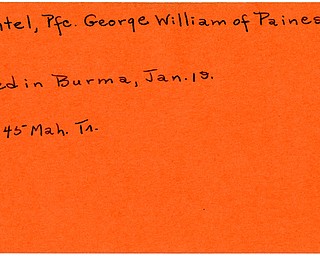 ntel, Pfc. George William of Paines
ed in Burma, Jan. 19.
45 Mah. Tr.